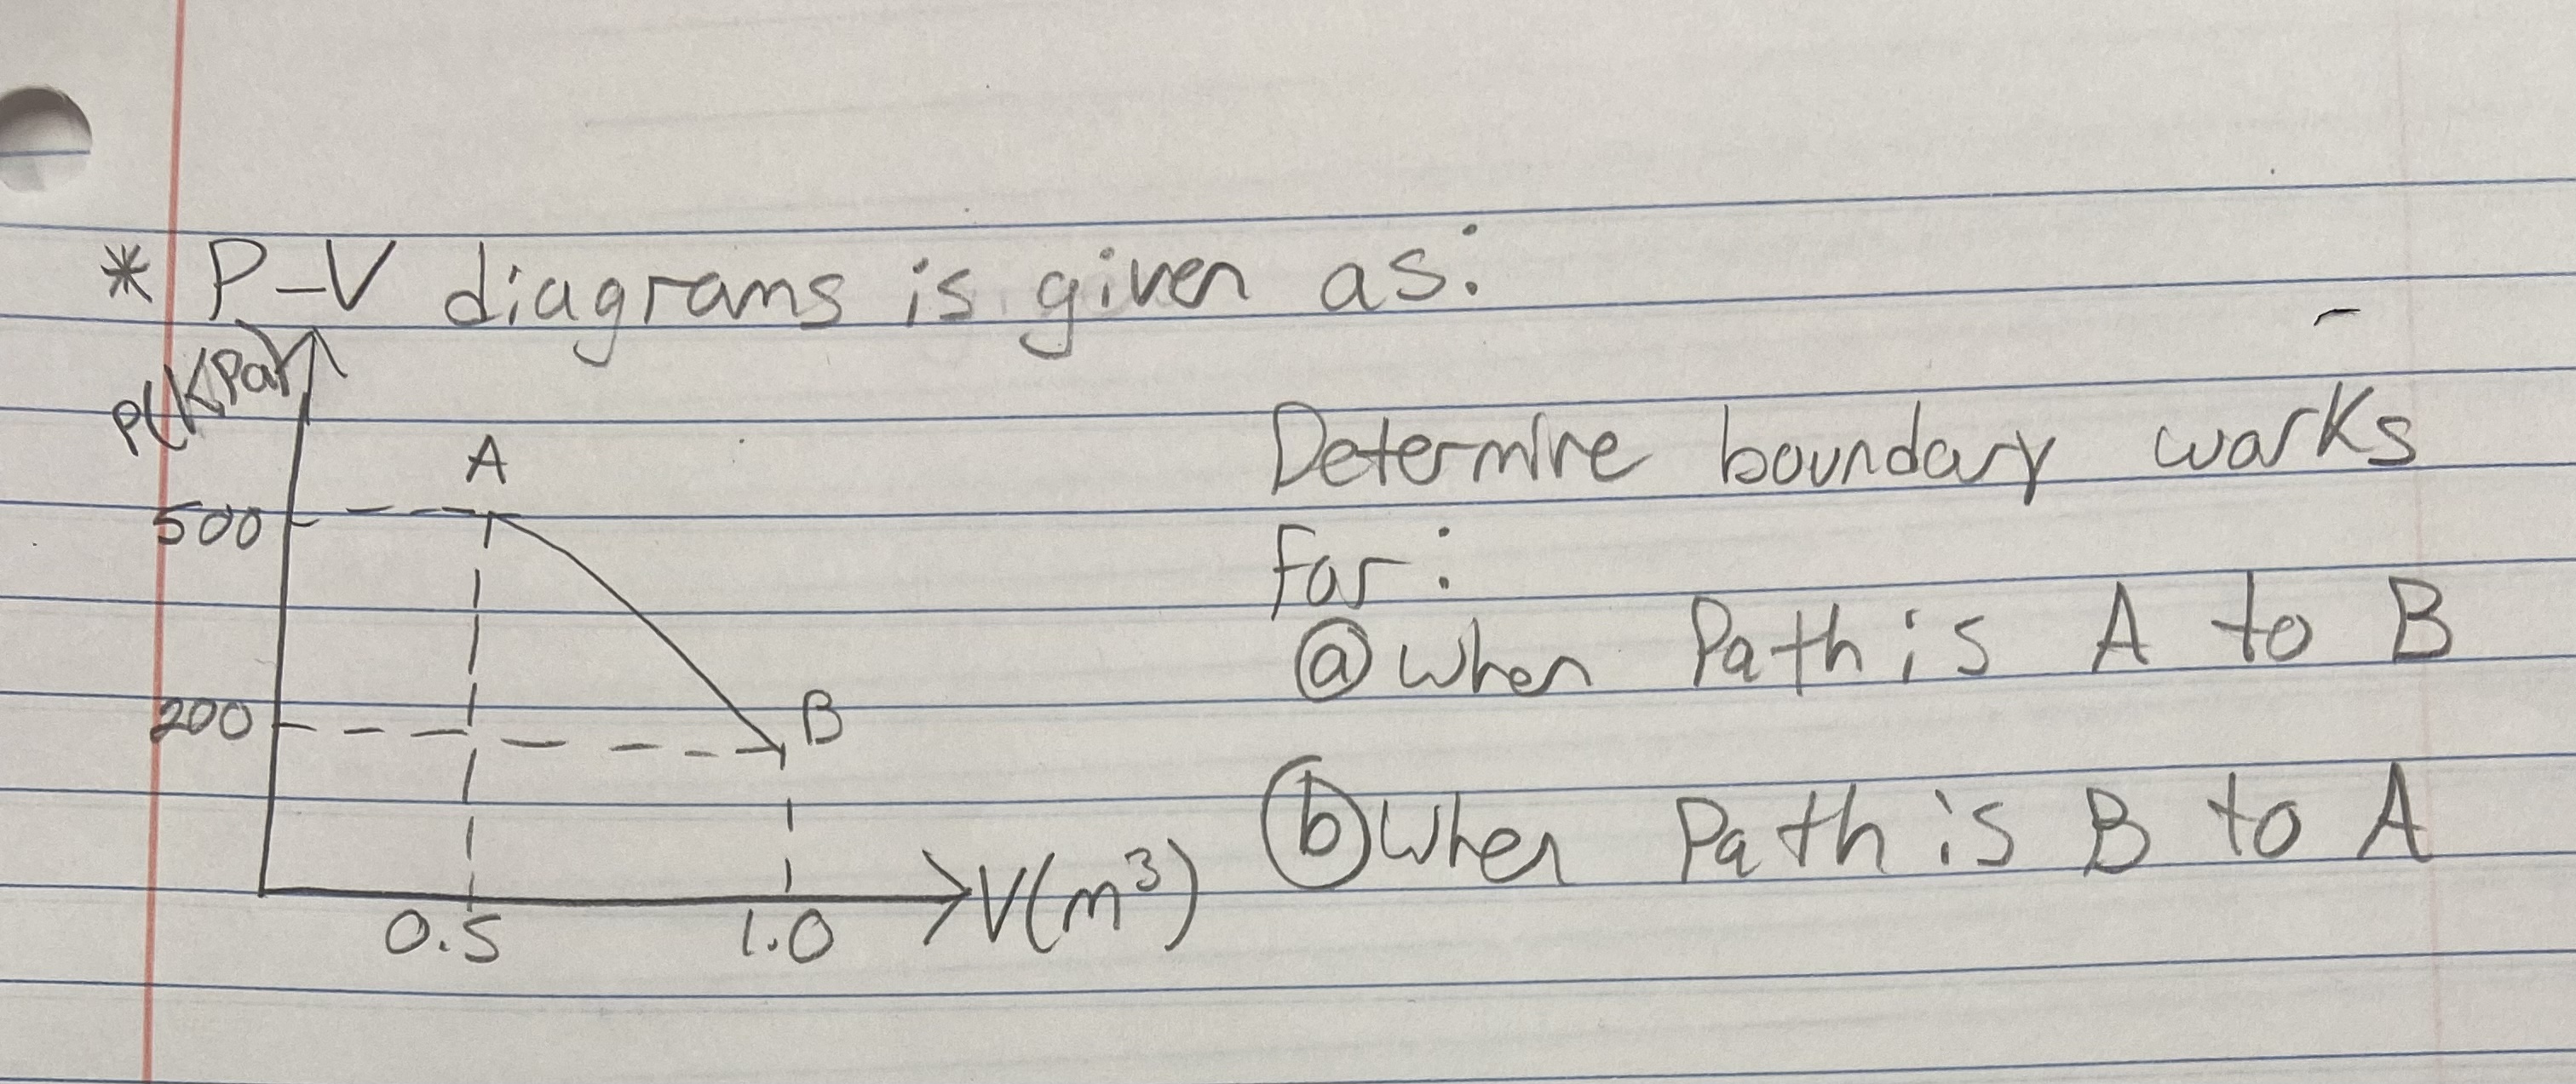 * P-V diagrams is given as:
P(KPa)
A
500
200
B
0.5
1.0
V(m³)
Determine boundary works
for:
ⓐ when Path is A to B
ⓑ when Path is B to A